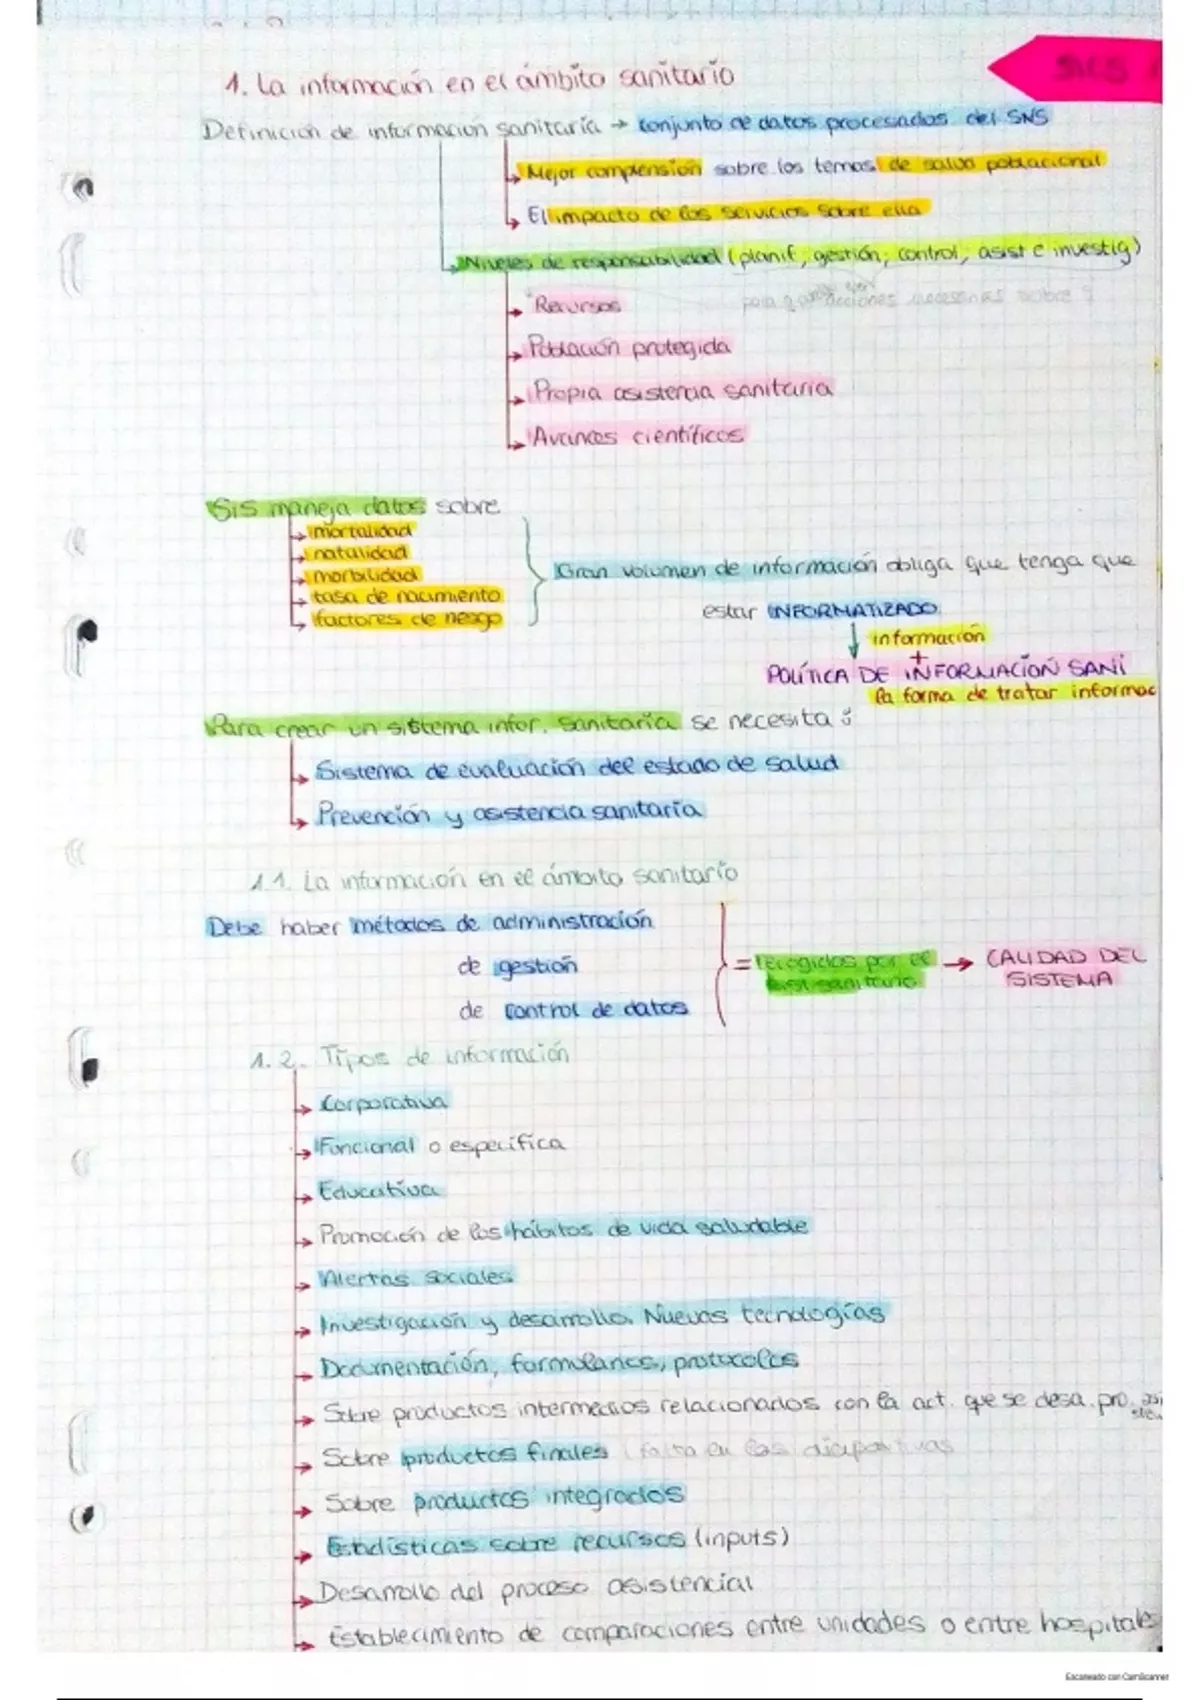 SICS
1. La información en el ámbito sanitario
Definición de información sanitaria → conjunto de datos procesados del SNS
Mejor comprensión sobre los temas de salud poblacional
El impacto de los servicios sobre ella
Niveles de responsabilidad (planif, gestión, control, asist e investig)
acciones necesarias sobre
Recursos
Población protegida
Propia asistencia sanitaria
Avances científicos
SIS maneja datos sobre
mortalidad
natalidad
morbilidad
tasa de nacimiento
factores de riesgo
Gran volumen de información obliga que tenga que
estar INFORMATIZADO
información
+
POLÍTICA DE INFORMACIÓN SANI
la forma de tratar informac
Para crear un sistema infor. sanitaria se necesita:
Sistema de evaluación del estado de salud
Prevención y asistencia sanitaria
1.1. La información en el ámbito sanitario
Debe haber métodos de administración
de gestión
de control de datos
= recogidos por el → CALIDAD DEL
sanitario SISTEMA
1.2. Tipos de información
Corporativa
Funcional o específica
Educativa
Promoción de los hábitos de vida saludable
Alertas sociales
Investigación y desarrollo. Nuevas tecnologías
Documentación, formularios, protocolos
Sobre productos intermedios relacionados con la act. que se desa. pro.
Sobre productos finales falta en las diapositivas
Sobre productos integrados
Estadísticas sobre recursos (inputs)
Desarrollo del proceso asistencial
Establecimiento de comparaciones entre unidades o entre hospitales
Escaneado con CamScanner